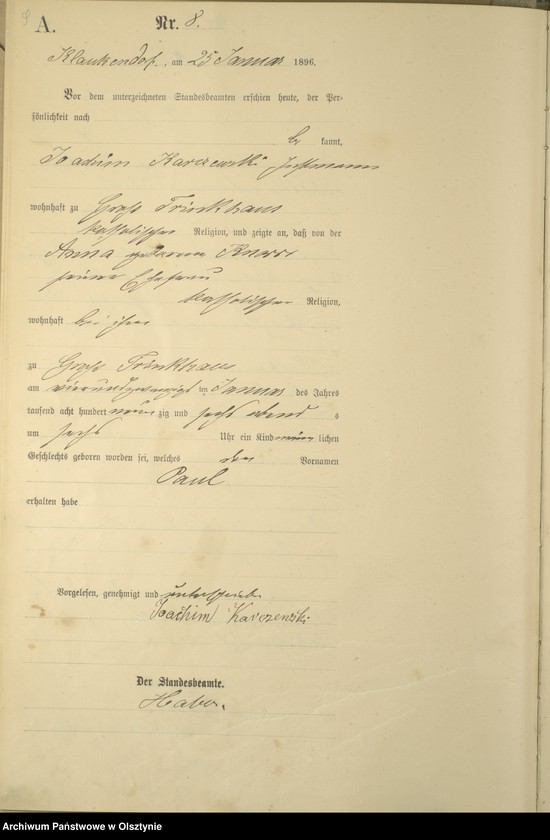 A. Nr. 8.
Klaukendorf, am 25 Januar 1896.
Vor dem unterzeichneten Standesbeamten erschien heute, der Per-
sönlichkeit nach
be kannt,
Joachim Karczewski
wohnhaft zu Groß Trinkhaus
katholischer Religion, und zeigte an, daß von der
Anna geborene
seiner Ehefrau
katholischer Religion,
wohnhaft bei ihm
zu Groß Trinkhaus
am vierundzwanzigsten Januar des Jahres
tausend acht hundert neunzig und sechs abends
um sechs Uhr ein Kind männlichen
Geschlechts geboren worden sei, welches den Vornamen
Paul
erhalten habe
Vorgelesen, genehmigt und unterschrieben
Joachim Karczewski
Der Standesbeamte.
Archiwum Państwowe w Olsztynie